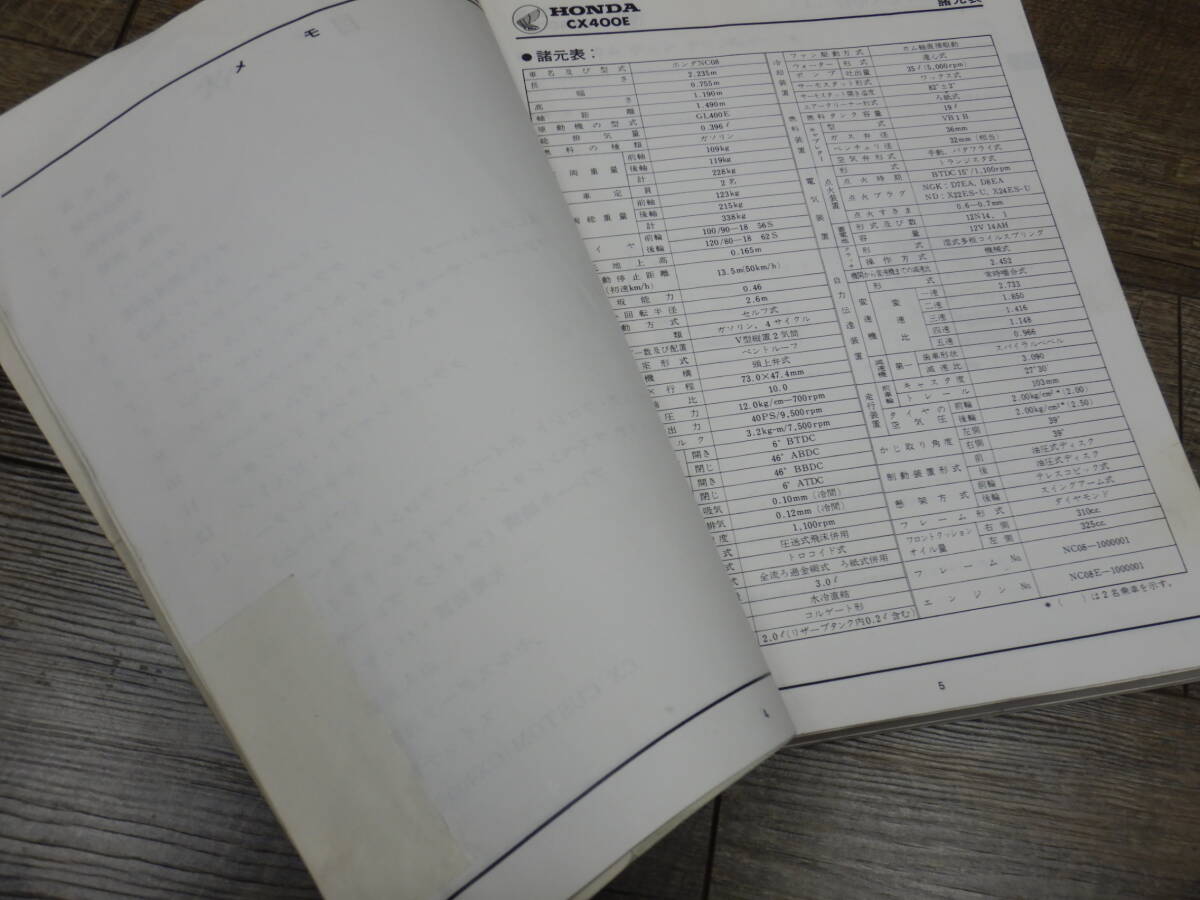 メモ
4
HONDA
CX400E
諸元表
● 諸元表：
車名及び型式 ホンダNC08
長さ 2.235m
幅 0.755m
高さ 1.190m
軸距離 1.490m
原動機の型式 GL400E
総排気量 0.396ℓ
燃料の種類 ガソリン
両重量 前軸 109kg
後軸 119kg
計 228kg
車定員 2名
両総重量 前軸 123kg
後軸 215kg
計 338kg
イヤ 前輪 100/90—18 56S
後輪 120/80—18 62S
地上高 0.165m
動停止距離(初速km/h) 13.5m(50km/h)
坂能力 0.46
回転半径 2.6m
動方式 セルフ式
類 ガソリン、4サイクル
数及び配置 V型縦置2気筒
形式 ペントルーフ
機構 頭上弁式
×行程 73.0×47.4mm
比 10.0
圧力 12.0kg/cm—700rpm
出力 40PS/9,500rpm
ルク 3.2kg-m/7,500rpm
開き 6°BTDC
閉じ 46°ABDC
開き 46°BBDC
閉じ 6°ATDC
吸気 0.10mm (冷間)
排気 0.12mm (冷間)
度 1,100rpm
式 圧送式飛沫併用
式 トロコイド式
式 全流ろ過金網式 ろ紙式併用
3.0ℓ
水冷直結
コルゲート形
2.0ℓ(リザーブタンク内0.2ℓ含む)
冷却装置 ファン駆動方式 カム軸直接駆動
ウォーターポンプ 形式 遠心式
吐出量 35ℓ(5,000rpm)
サーモスタット形式 ワックス式
サーモスタット開き温度 82°±2°
燃料装置 エアークリーナー形式 ろ紙式
燃料タンク容量 19ℓ
キャブレター 型式 VB1B
ガス弁径 36mm
ベンチュリ径 32mm (相当)
空気弁形式 手動、バタフライ式
電気装置 点火装置 形式 トランジスタ式
点火時期 BTDC 15°/1,100rpm
点火プラグ NGK：D7EA, D8EA
ND：X22ES-U, X24ES-U
点火すきま 0.6—0.7mm
蓄電池 形式及び数 12N14, 1
容量 12V 14AH
動力伝達装置 クラッチ 形式 湿式多板コイルスプリング
操作方式 機械式
機関から変速機までの減速比 2.452
変速機 形式 常時噛合式
変速比 一速 2.733
二速 1.850
三速 1.416
四速 1.148
五速 0.966
減速機 第一 歯車形状 スパイラルベベル
減速比 3.090
走行装置 前車輪 キャスタ度 27°30′
トレール 103mm
タイヤの空気圧 前輪 2.00kg/cm²*(2.00)
後輪 2.00kg/cm²*(2.50)
かじ取り角度 左側 39°
右側 39°
制動装置形式 前 油圧式ディスク
後 油圧式ディスク
懸架方式 前輪 テレスコピック式
後輪 スイングアーム式
フレーム形式 ダイヤモンド
フロントクッションオイル量 右側 310cc.
左側 325cc.
フレームNo. NC08—1000001
エンジンNo. NC08E—1000001
*( )は2名乗車を示す。
5